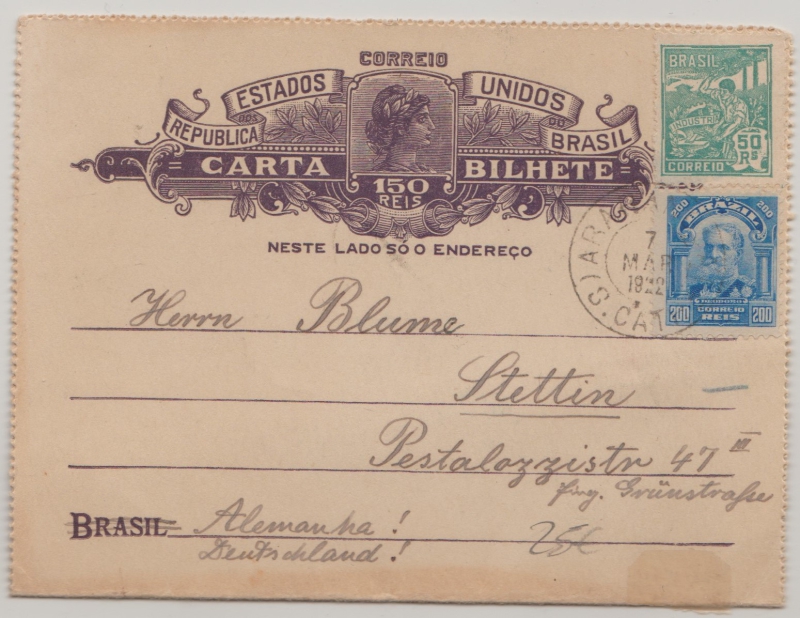 CORREIO
ESTADOS UNIDOS
REPUBLICA DOS DO BRASIL
CARTA BILHETE
150
REIS
NESTE LADO SÓ O ENDEREÇO
BRASIL
INDUSTRIA
50 RS
CORREIO
200 BRAZIL 200
DEODORO
200 CORREIO REIS 200
7
MAR
1922
S. CAT
Herrn Blume
Stettin
Pestalozzistr 47 III
Ping. Grünstraße
BRASIL Alemanha!
Deutschland!
25€